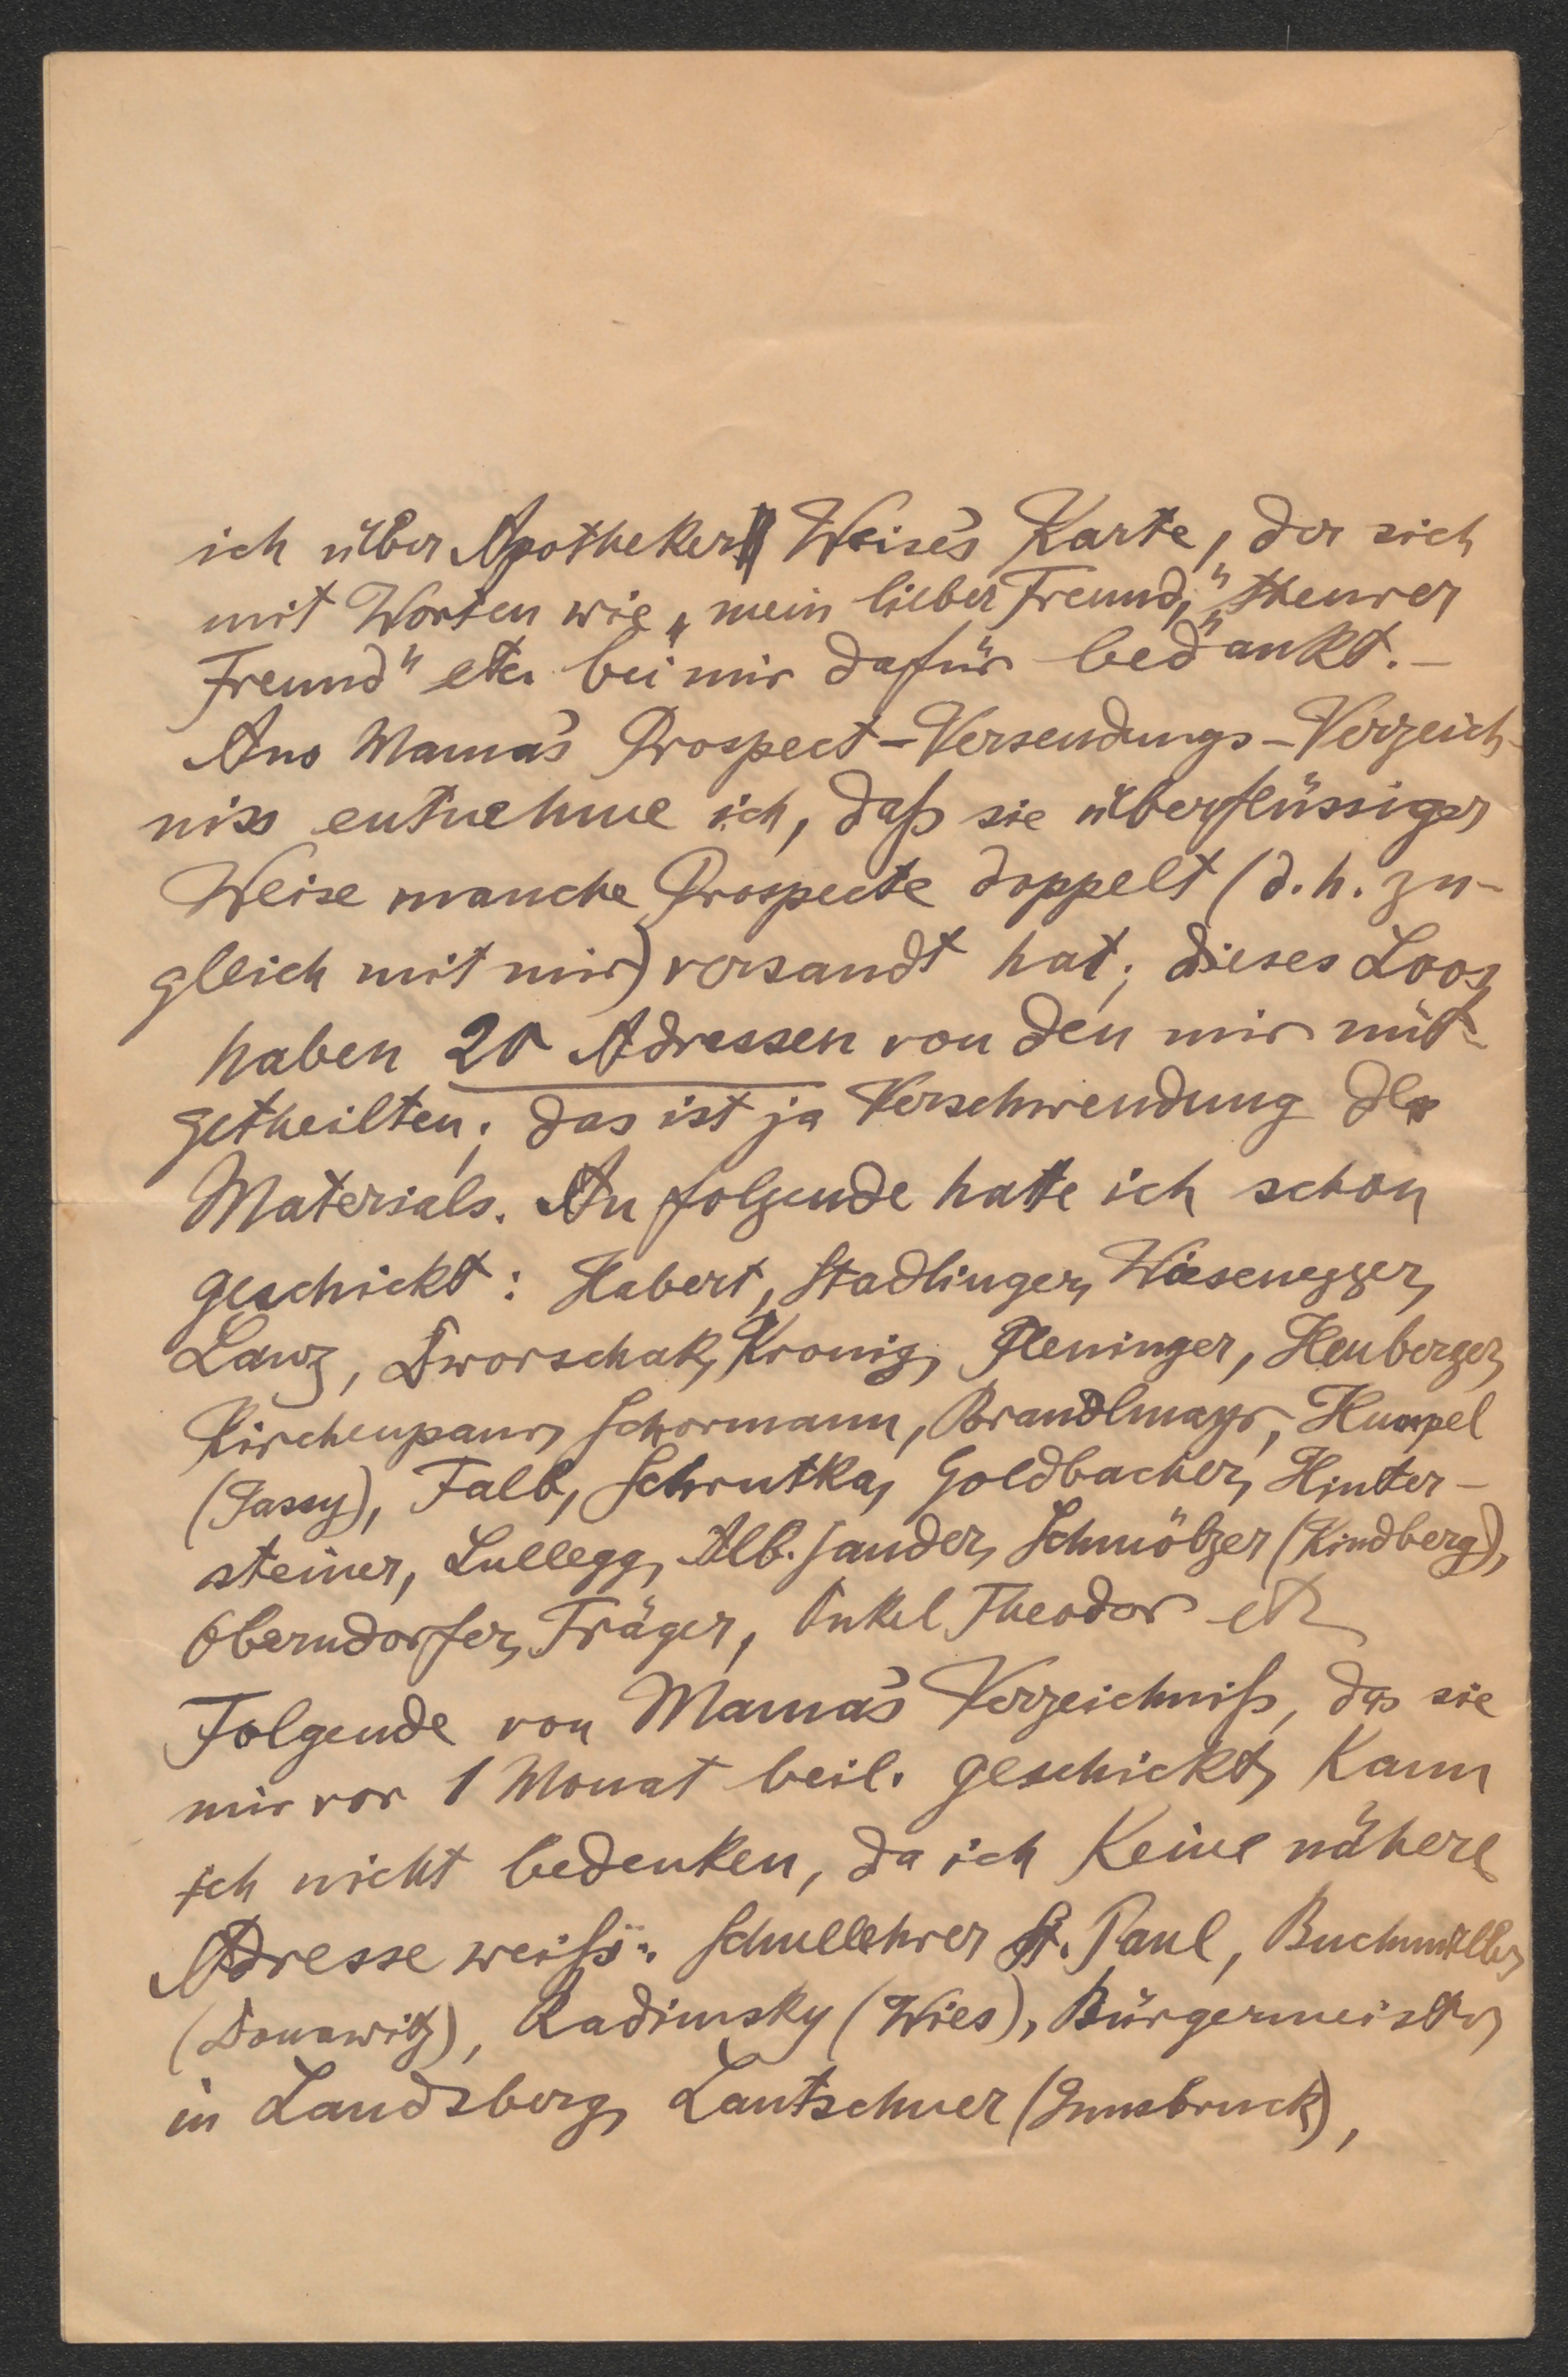 ich über Apotheker Weise's Karte, der sich
mit Worten wie „mein lieber Freund," „theurer
Freund" etc. bei mir dafür bedankt. —
Aus Mama's Prospect-Versendungs-Verzeich-
niss entnehme ich, daß sie überflüssiger
Weise manche Prospecte doppelt (d. h. zu-
gleich mit mir) versandt hat; dieses Loos
haben 20 Adressen von den mir mit-
getheilten; das ist ja Verschwendung des
Materials. An folgende hatte ich schon
geschickt: Habert, Stadlinger, Wiesenegger,
Lanz, Dworschak, Kronig, Pleninger, Heuberger,
Kirchenpaur, Schormann, Brandlmayr, Humpel
(Jassy), Falb, Schrutka, Goldbacher, Hinter-
steiner, Lullegg, Alb. Sander, Schmölzer (Kindberg),
Oberndorfer, Träger, Onkel Theodor etc
Folgende von Mama's Verzeichniß, das sie
mir vor 1 Monat beil. geschickt, kann
ich nicht bedenken, da ich keine nähere
Adresse weiß: Schullehrer St. Paul, Buchmüller
(Donawitz), Radimsky (Wies), Bürgermeister
in Landsberg, Lantschner (Innsbruck),